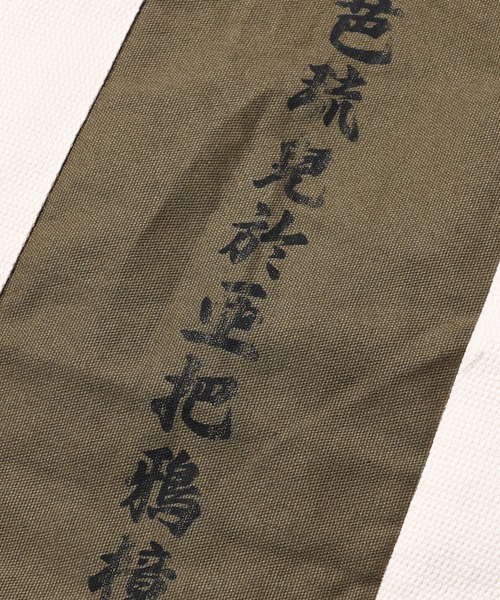 芭琉兒於亜把鴉樟